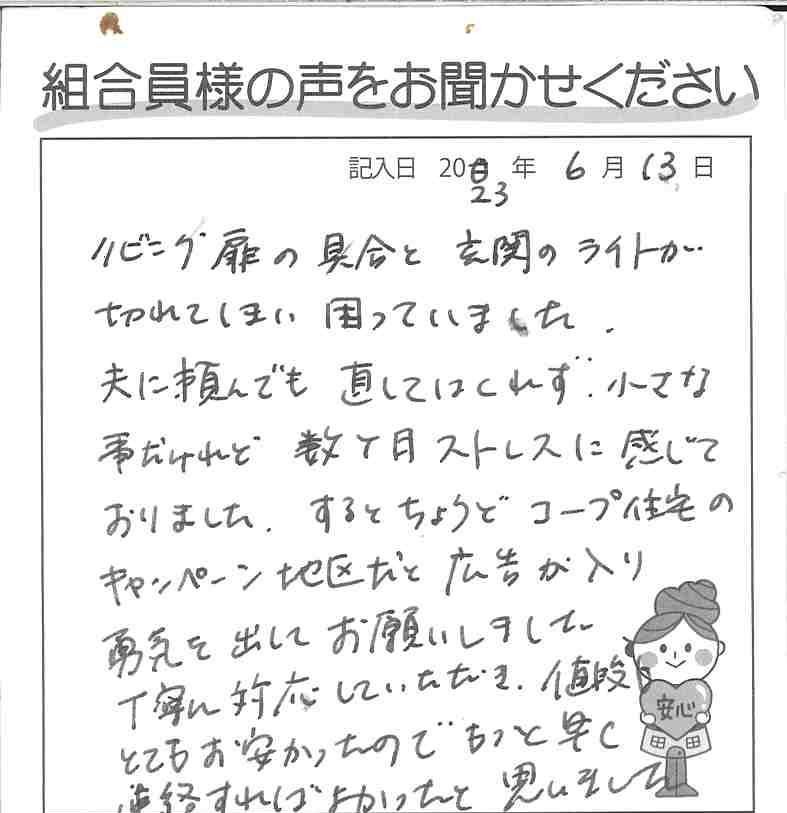 組合員様の声をお聞かせください
記入日 2023 年 6 月 13 日
リビング扉の具合と 玄関のライトが
切れてしまい 困っていました.
夫に頼んでも 直してはくれず. 小さな
事だけれど 数ヶ月 ストレスに 感じて
おりました. するとちょうど コープ住宅の
キャンペーン 地区だと 広告が入り
勇気を 出して お願いしました
丁寧に 対応していただき. 値段
とてもお安かったので もっと 早く
連絡すれば よかったと 思いました
安心